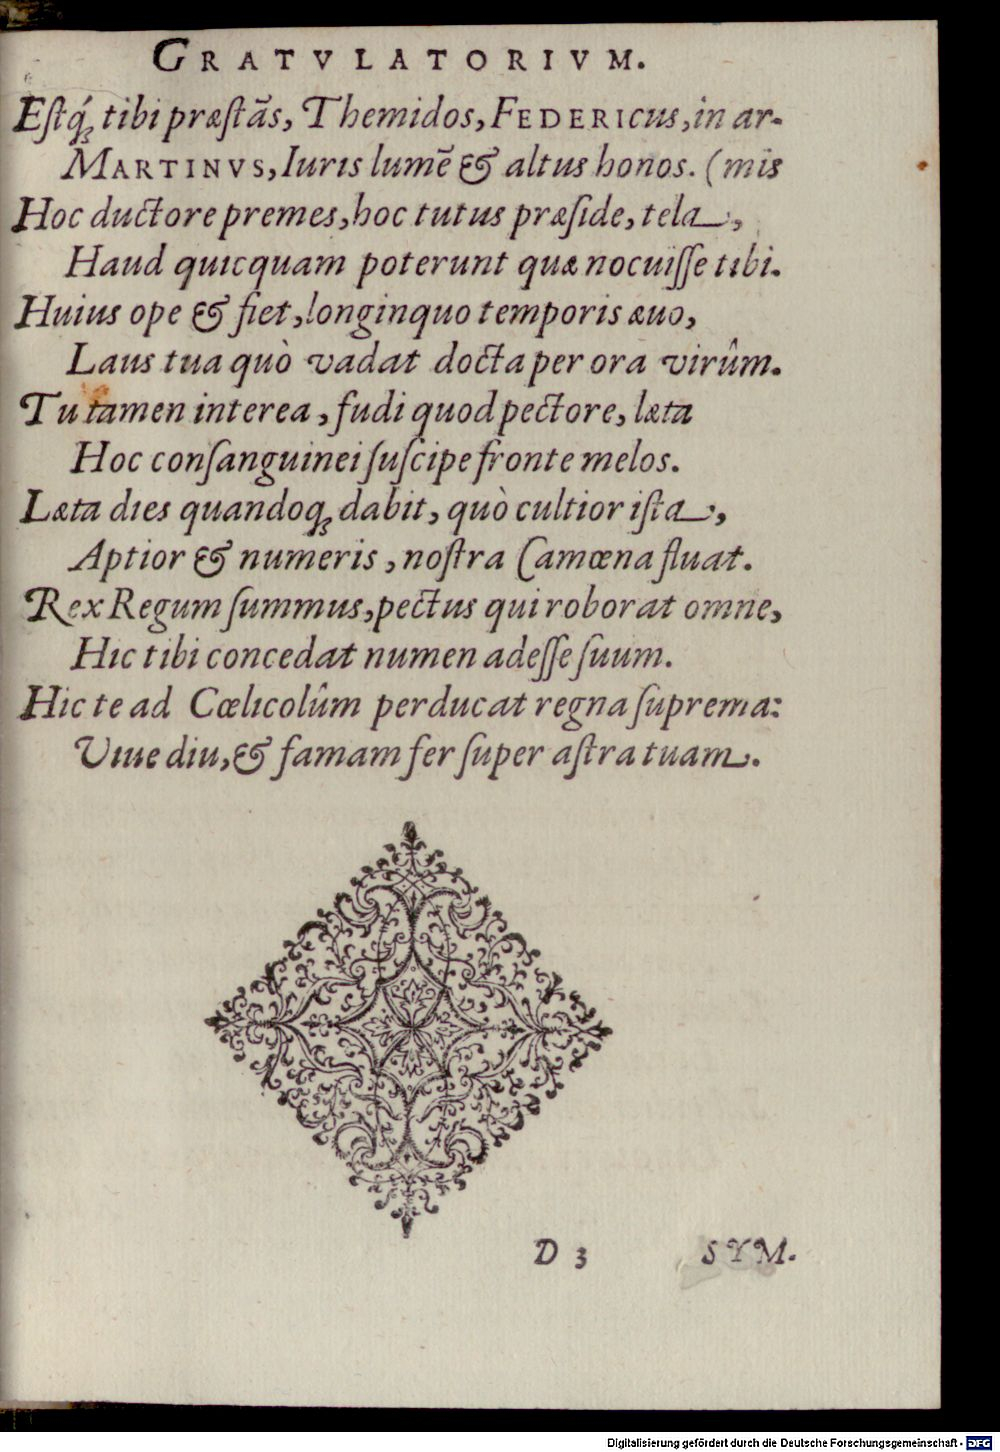 GRATVLATORIVM.
Eſtq́ꝫ tibi præſtãs, Themidos, FEDERIcus, in ar-
MARTINVS, Iuris lumẽ & altus honos. (mis
Hoc ductore premes, hoc tutus præſide, tela,
Haud quicquam poterunt quæ nocuiſſe tibi.
Huius ope & fiet, longinquo temporis æuo,
Laus tua quò vadat docta per ora virûm.
Tu tamen interea, fudi quod pectore, læta
Hoc conſanguinei ſuſcipe fronte melos.
Læta dies quandoqꝫ dabit, quò cultior iſta,
Aptior & numeris, noſtra Camœna fluat.
Rex Regum ſummus, pectus qui roborat omne,
Hic tibi concedat numen adeſſe ſuum.
Hic te ad Cœlicolûm perducat regna ſuprema:
Viue diu, & famam fer ſuper aſtra tuam.
D 3 SYM.
Digitalisierung gefördert durch die Deutsche Forschungsgemeinschaft - DFG